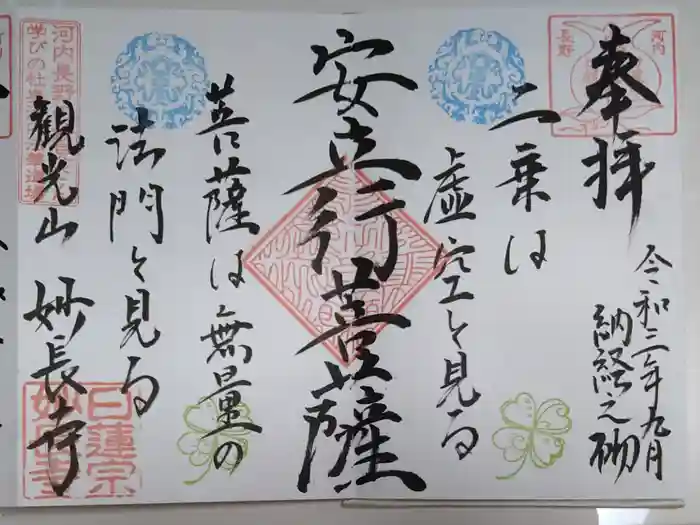 奉拝
令和三年九月
納経之砌
二乗は
虚空と見る
安立行菩薩
菩薩は無量の
法門と見る
観光山 妙長寺
河内
長野
河内長野
日蓮宗
妙長寺